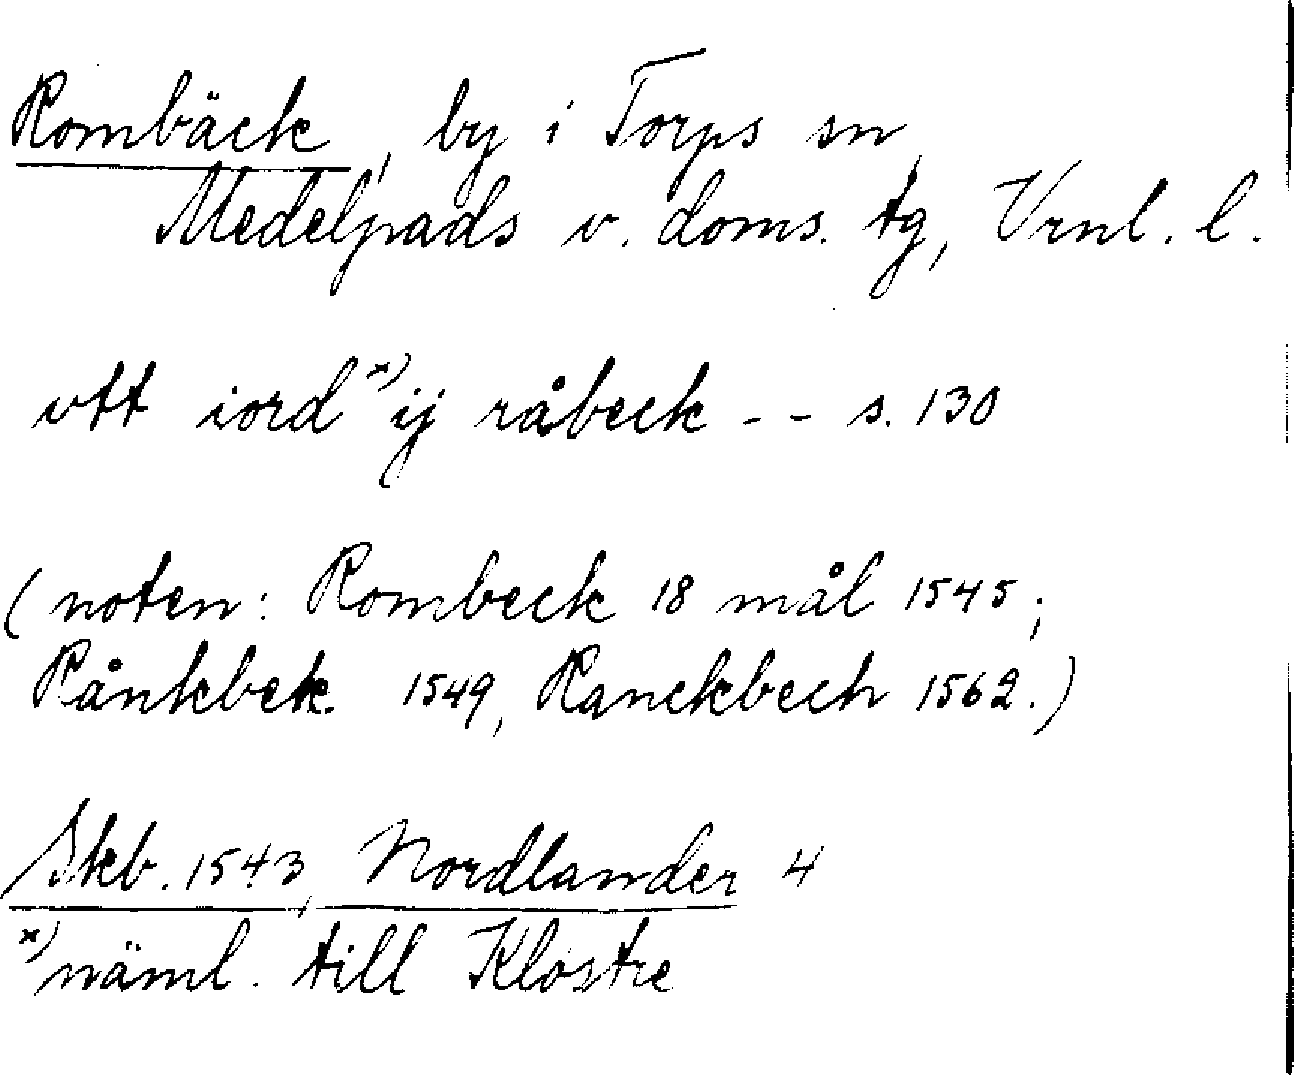 Rombäck, by i Torps sn,
Medelpads v. doms. tg, Vrnl. l.
vtt iord x) ij råbeck - - s. 130
(noten: Rombeck 18 mål 1545;
Rånkbek 1549, Ranckbech 1562.)
Skb. 1543, Nordlander 4
x) näml. till Klostre